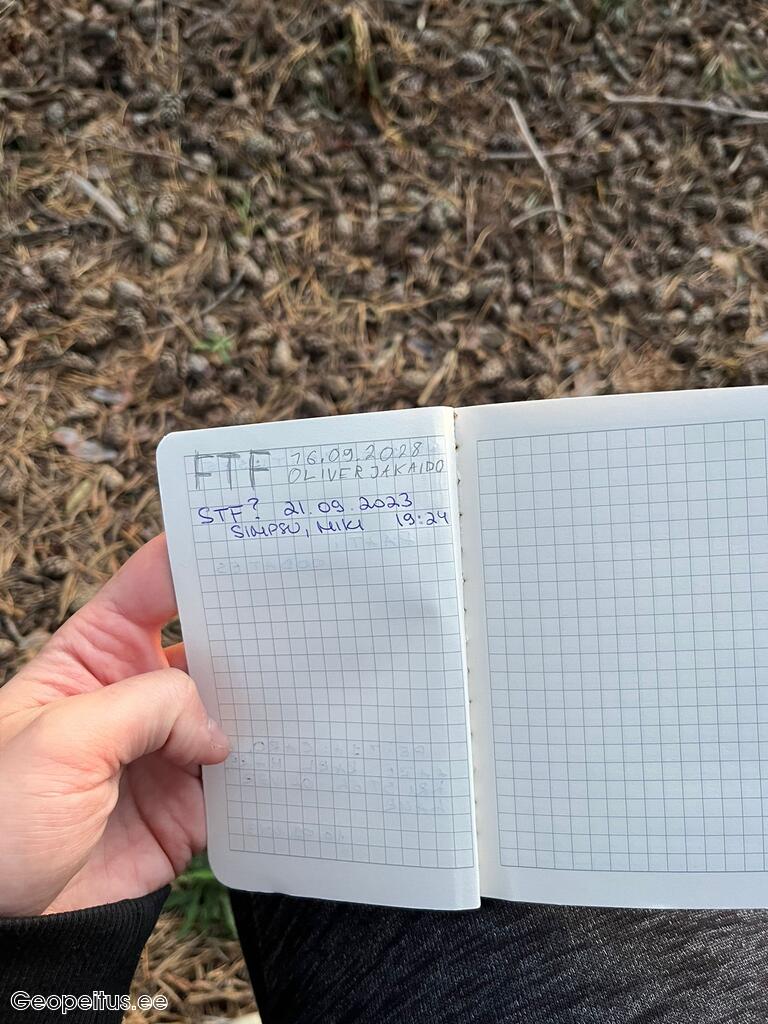 FTF 16.09.2028
OLIVER JAKAIDO
STF? 21.09.2023
SIMPSU, MIKI 19:24
Geopeitus.ee